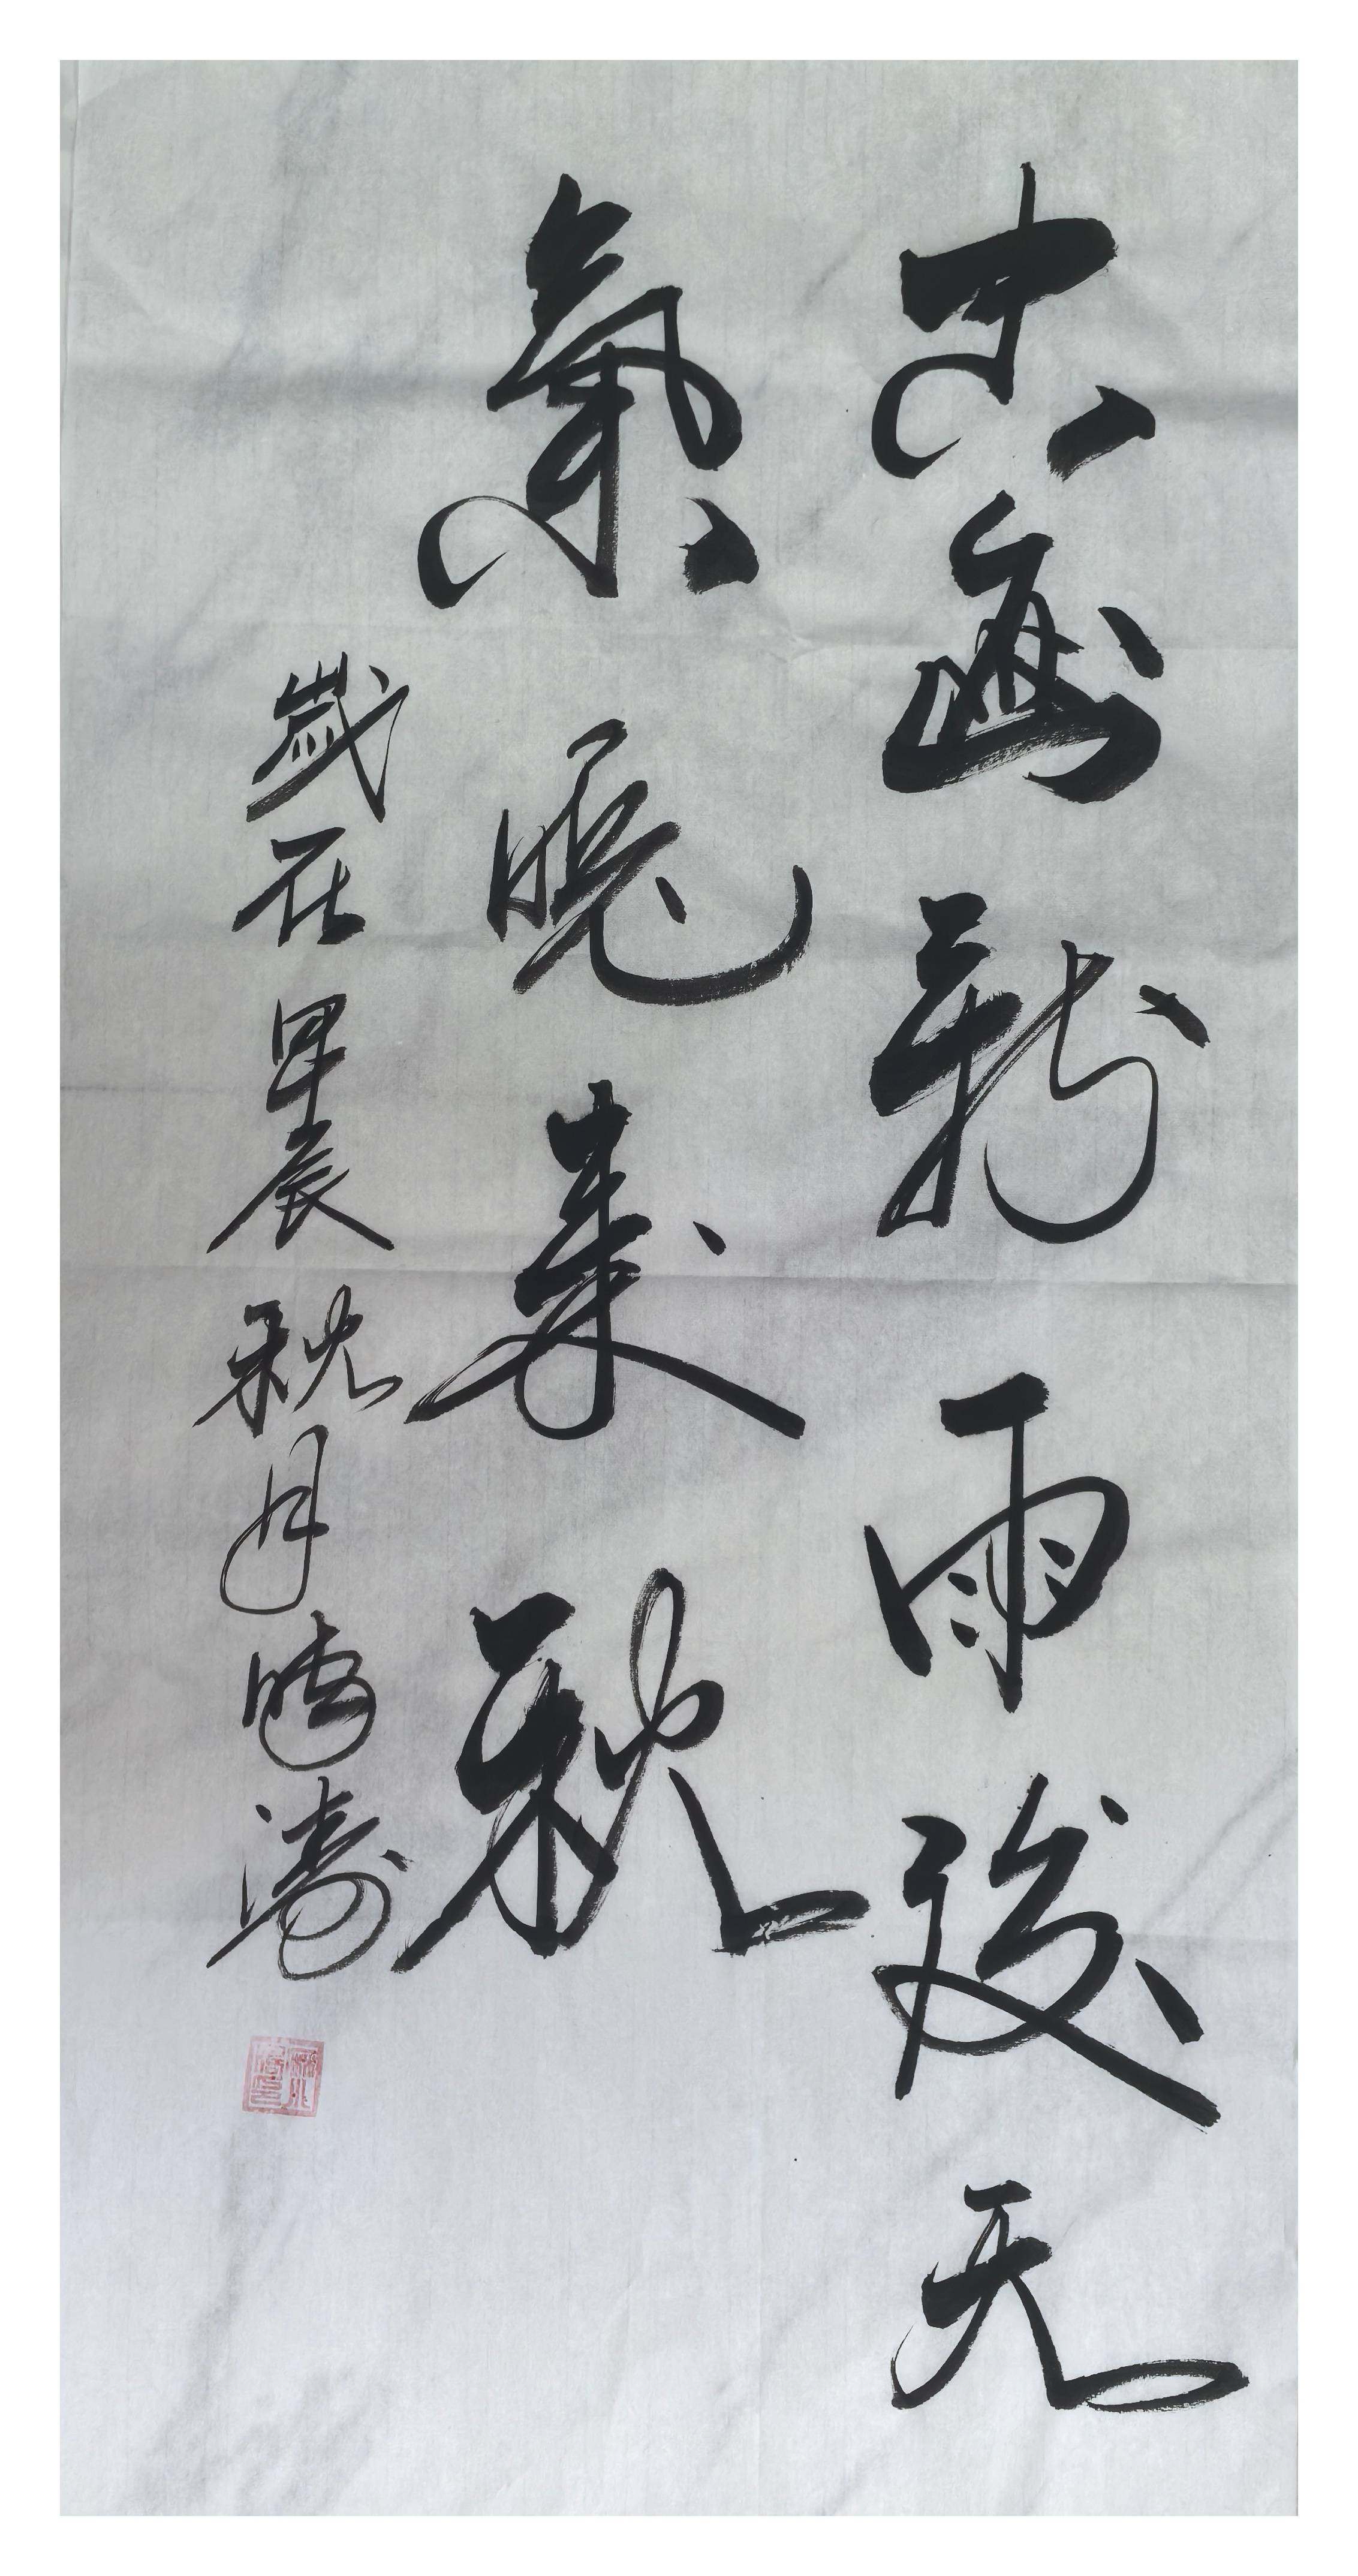 空山新雨後天
氣晚來秋
歲在甲辰秋月曉濤